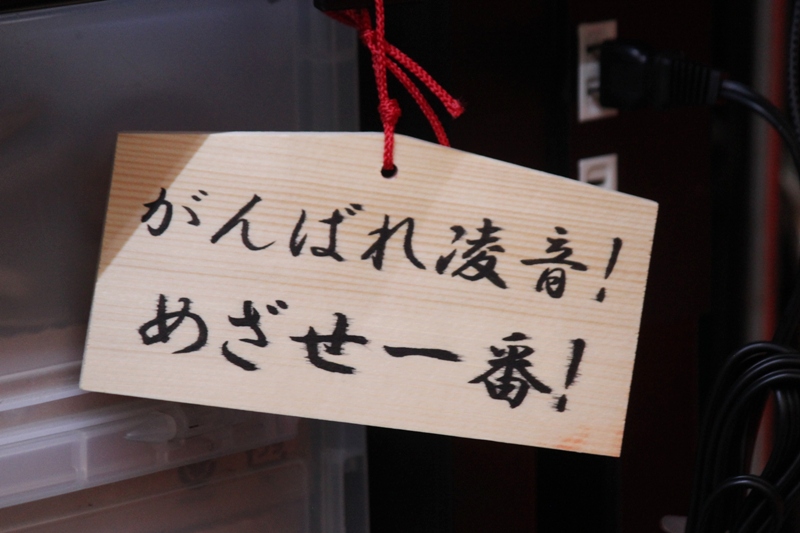 がんばれ凌音!
めざせ一番!